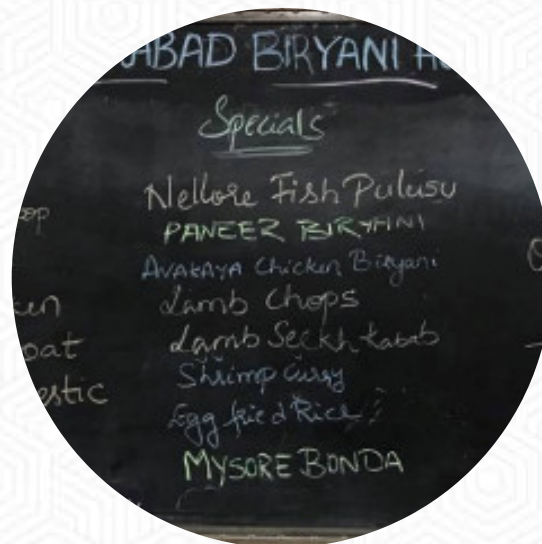 ABAD BIRYANI
Specials
Nellore Fish Pulusu
PANEER BIRYANI
AVAKAYA Chicken Biryani
Lamb Chops
Lamb Seekh Kabab
Shrimp Curry
Egg fried Rice
MYSORE BONDA
oat
estic